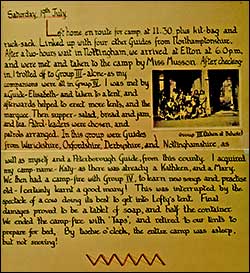 Saturday, 19th July.
Left home en route for camp at 11.30, plus kit-bag and
ruck-sack. Linked up with four other Guides from Northamptonshire.
After a two-hours wait in Nottingham, we arrived at Elton at 6.0pm.
and were met and taken to the camp by Miss Musson. After checking-
in I trotted off to Group III - alone - as my
companions were all in Group IV. I was met by
a Guide - Elisabeth - and taken to a tent, and
afterwards helped to erect more tents, and the
marquee. Then supper - salad, bread and jam,
and tea. Patrol leaders were chosen, and
patrols arranged. In this group were Guides
from Warwickshire, Oxfordshire, Derbyshire, and Nottinghamshire, as
Group III
well as myself and a Peterborough Guide, from this county. I acquired
my camp-name - Katy - as there was already a Kathleen, and a Mary.
We then had a camp-fire with Group IV, to learn new songs and practise
old - I certainly learnt a good many! This was interrupted by the
spectacle of a cow doing its best to get into Lofty's tent. Final
damages proved to be a tablet of soap, and half the container.
We ended the camp-fire with "Taps", and retired to our tents to
prepare for bed. By twelve o'clock, the entire camp was asleep,
but not snoring!